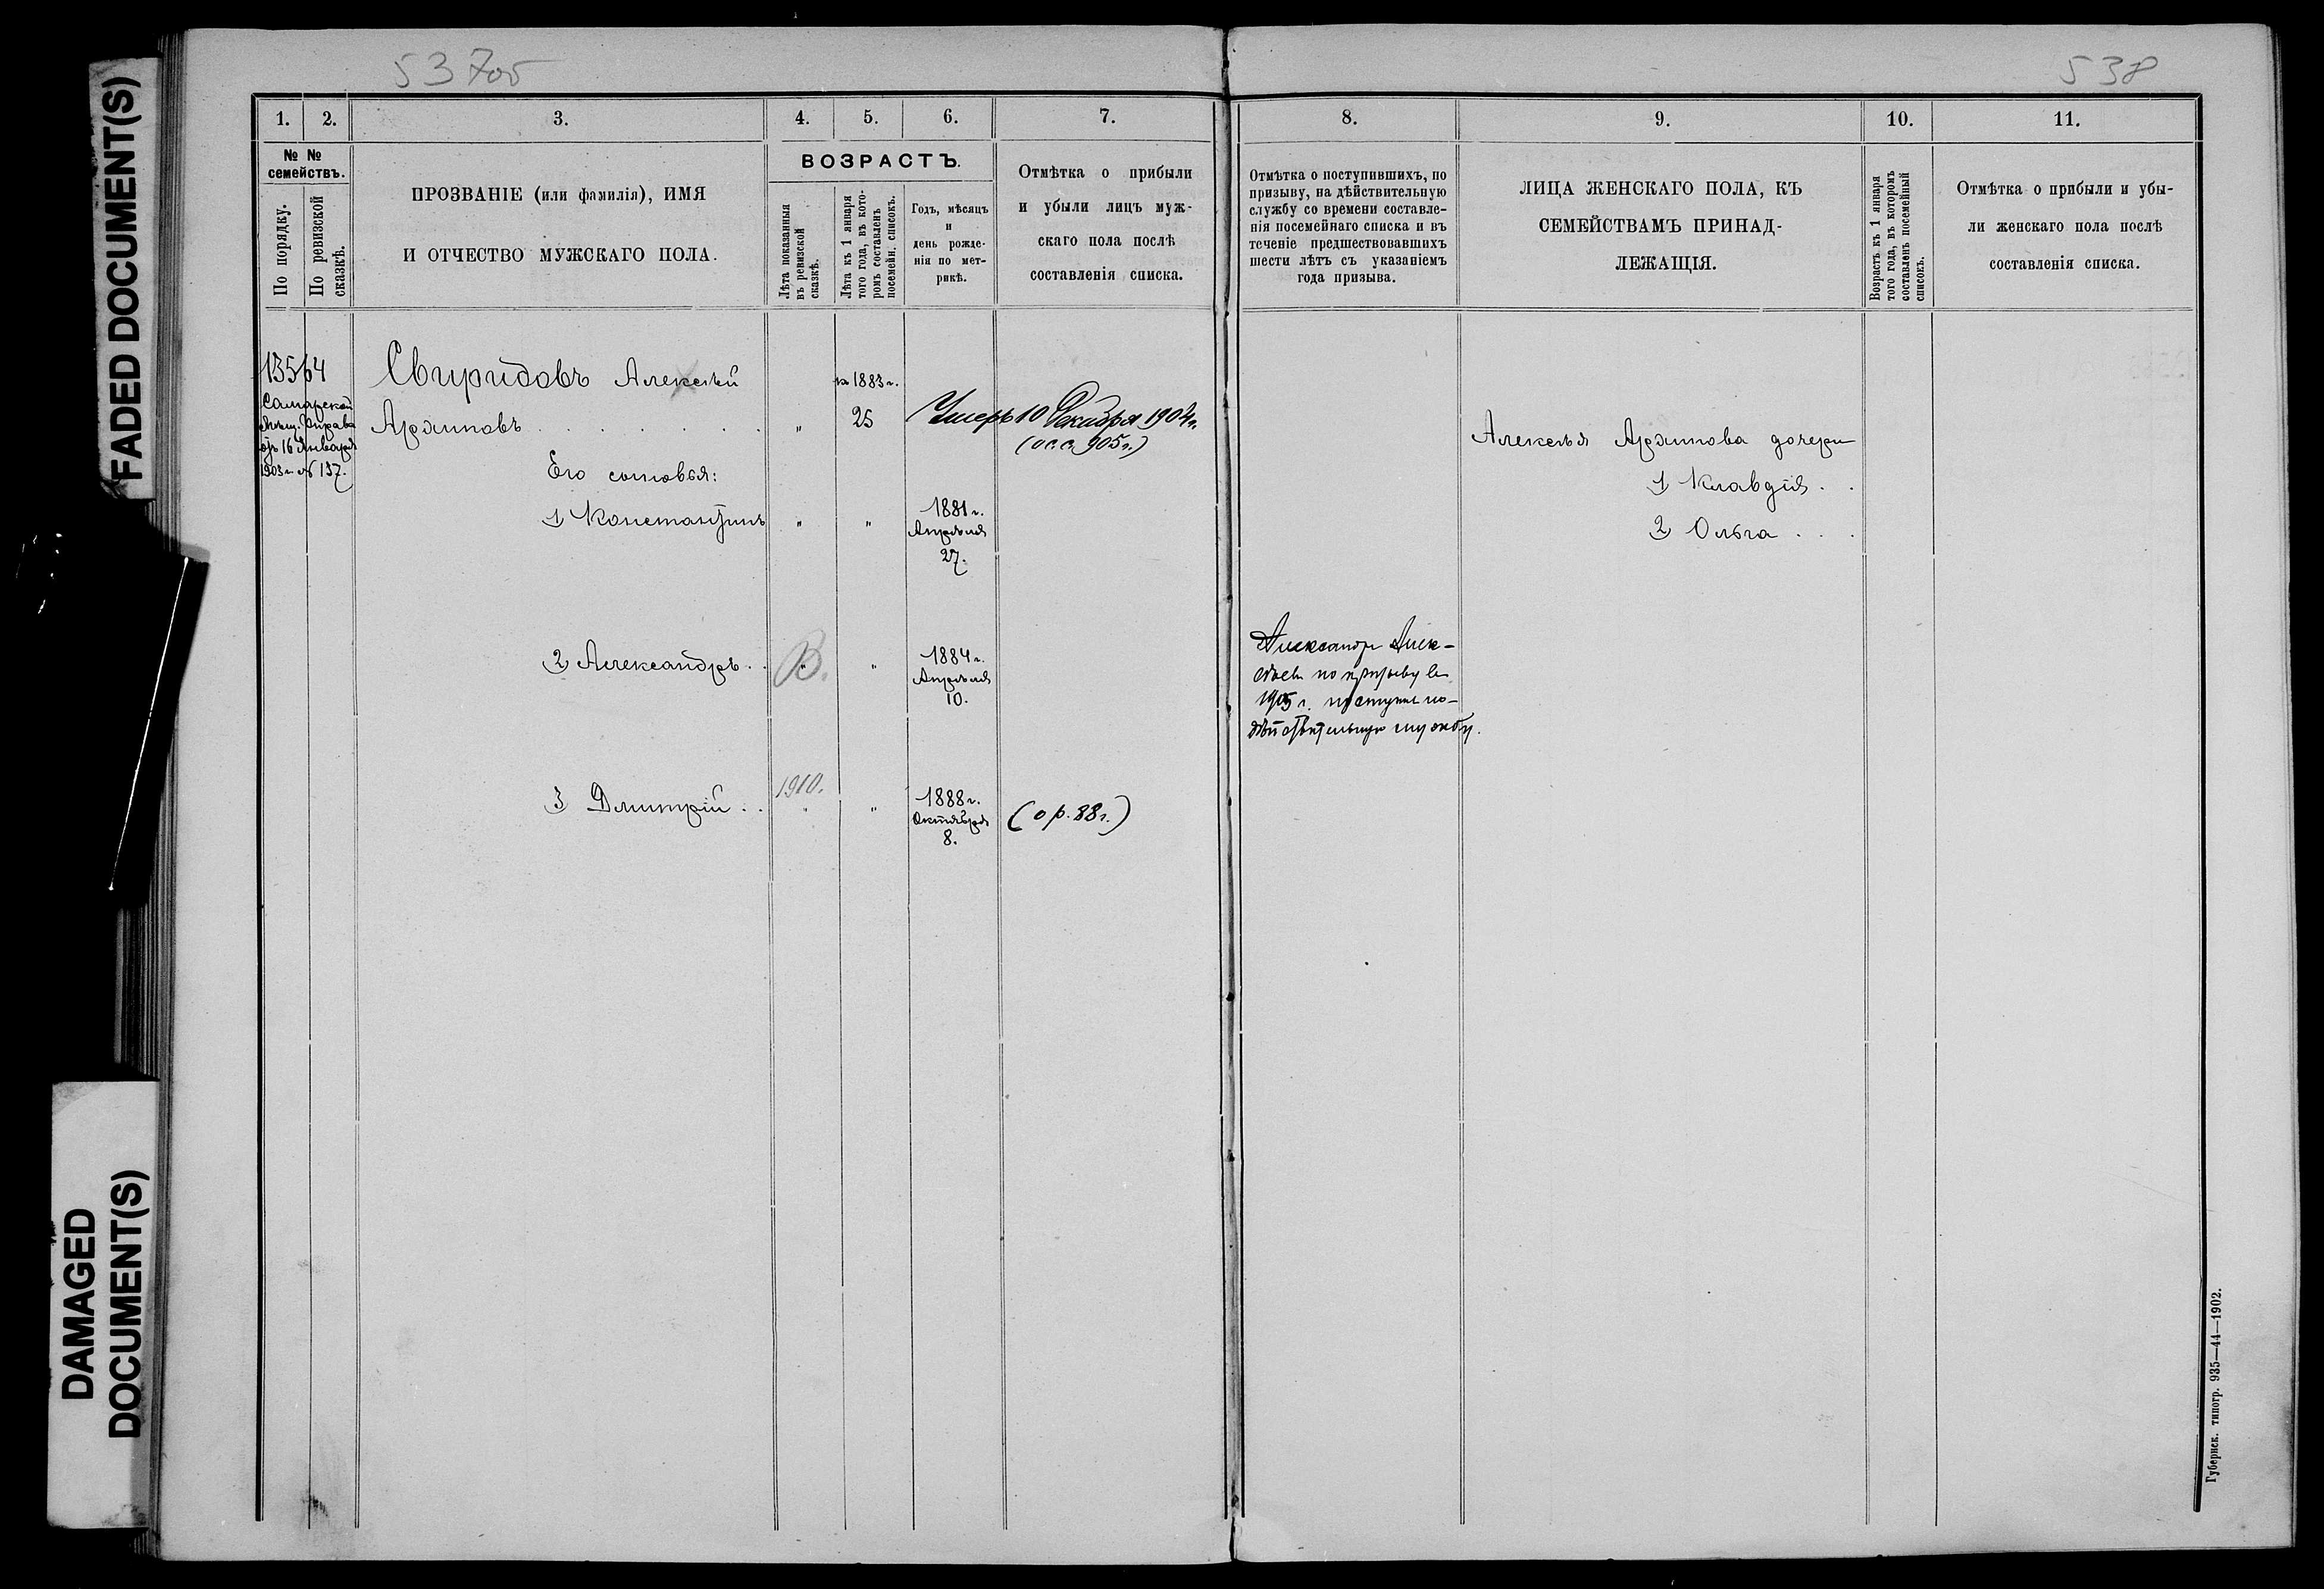 537об
538
1. 2. 3. 4. 5. 6. 7. 8. 9. 10. 11.
№ №
семействъ.
По порядку.
По ревизской
сказкѣ.
ПРОЗВАНІЕ (или фамилія), ИМЯ
И ОТЧЕСТВО МУЖСКАГО ПОЛА.
ВОЗРАСТЪ.
Лѣта показанныя
въ ревизской
сказкѣ.
Лѣта къ 1 января
того года, въ кото-
ромъ составленъ
посемейн. списокъ.
Годъ, мѣсяцъ
и
день рожде-
нія по мет-
рикѣ.
Отмѣтка о прибыли
и убыли лицъ муж-
скаго пола послѣ
составленія списка.
Отмѣтка о поступившихъ, по
призыву, на дѣйствительную
службу со времени составле-
нія посемейнаго списка и въ
теченіе предшествовавшихъ
шести лѣтъ съ указаніемъ
года призыва.
ЛИЦА ЖЕНСКАГО ПОЛА, КЪ
СЕМЕЙСТВАМЪ ПРИНАД-
ЛЕЖАЩІЯ.
Возрастъ къ 1 января
того года, въ которомъ
составленъ посемейный
списокъ.
Отмѣтка о прибыли и убы-
ли женскаго пола послѣ
составленія списка.
13564
Самарской
Мѣщ. Управа
отъ 16 Января
1903 г. № 137.
Свиридовъ Алексѣй
на 1883 г.
Архиповъ . . . . . . . „ 25
Умеръ 10 Декабря 1904 г.
(о.с.с. 905 г.)
Его сыновья:
1 Константинъ „ „ 1881 г.
Апрѣля
27.
2 Александръ . . В. „ „ 1884 г.
Апрѣля
10.
1910.
3 Дмитрій . . „ „ 1888 г.
Октября
8.
(о р. 88 г.)
Александръ Алек-
сѣевъ по призыву въ
1905 г. поступилъ на
дѣйствительную службу.
Алексѣя Архипова дочери
1 Клавдія . .
2 Ольга . . .
Губернск. типогр. 935—44—1902.
FADED DOCUMENT(S)
DAMAGED
DOCUMENT(S)